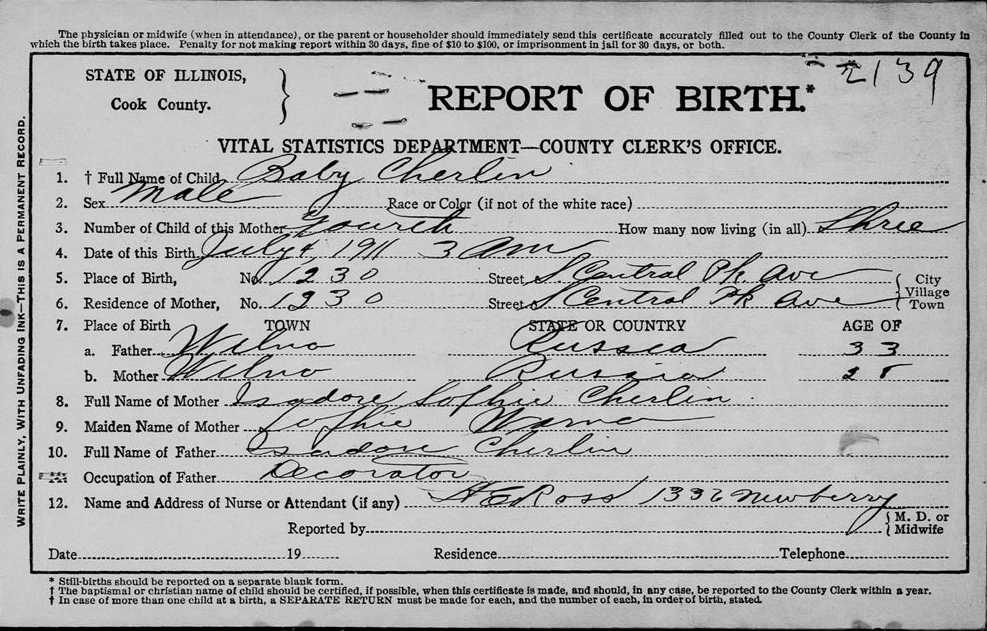 The physician or midwife (when in attendance), or the parent or householder should immediately send this certificate accurately filled out to the County Clerk of the County in
which the birth takes place. Penalty for not making report within 30 days, fine of $10 to $100, or imprisonment in jail for 30 days, or both.
STATE OF ILLINOIS,
Cook County.
REPORT OF BIRTH.* 2139
VITAL STATISTICS DEPARTMENT—COUNTY CLERK'S OFFICE.
1. † Full Name of Child Baby Cherlin
2. Sex Male Race or Color (if not of the white race)
3. Number of Child of this Mother Fourth How many now living (in all) Three
4. Date of this Birth July 4, 1911 3 AM
5. Place of Birth, No. 1230 Street S Central Pk. Ave City
Village
6. Residence of Mother, No. 1230 Street S Central Pk Ave Town
7. Place of Birth TOWN STATE OR COUNTRY AGE OF
a. Father Wilno Russia 33
b. Mother Wilno Russia 28
8. Full Name of Mother Isadore Sophie Cherlin
9. Maiden Name of Mother Sophie
10. Full Name of Father Isadore Cherlin
Occupation of Father Decorator
12. Name and Address of Nurse or Attendant (if any) Ross 1332 Newberry
Reported by M. D. or
Midwife
Date 19 Residence Telephone
* Still-births should be reported on a separate blank form.
† The baptismal or christian name of child should be certified, if possible, when this certificate is made, and should, in any case, be reported to the County Clerk within a year.
† In case of more than one child at a birth, a SEPARATE RETURN must be made for each, and the number of each, in order of birth, stated.
WRITE PLAINLY, WITH UNFADING INK—THIS IS A PERMANENT RECORD.